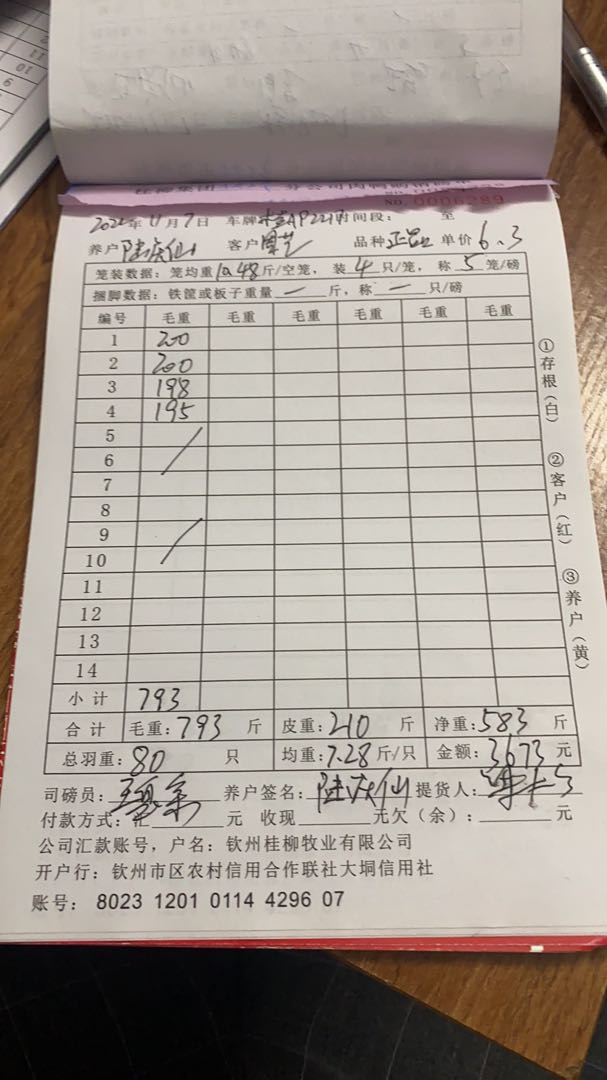 NO. 0006289
2022年11月7日 车牌 时间段： 至
养户 陆庆仙 客户 品种 正品 单价 6.3
笼装数据：笼均重10.48斤/空笼，装4只/笼，称5笼/磅
捆脚数据：铁筐或板子重量一斤，称一只/磅
编号 毛重 毛重 毛重 毛重 毛重 毛重
1 200
2 200
3 198
4 195
5
6
7
8
9
10
11
12
13
14
小计 793
合计 毛重：793 斤 皮重：210 斤 净重：583 斤
总羽重：80 只 均重：7.28斤/只 金额：3673元
司磅员： 养户签名：陆庆仙 提货人：
付款方式：汇 元 收现 元欠（余）： 元
公司汇款账号，户名：钦州桂柳牧业有限公司
开户行：钦州市区农村信用合作联社大垌信用社
账号：8023 1201 0114 4296 07
①存根（白）
②客户（红）
③养户（黄）